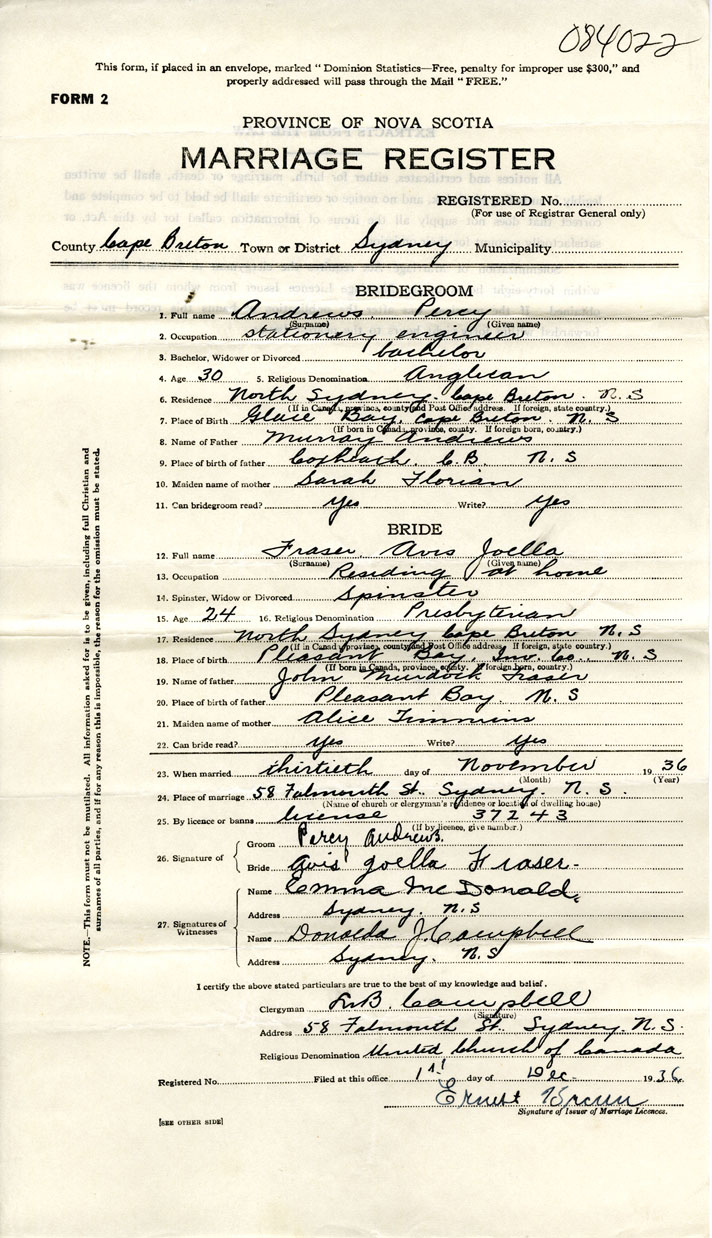 084022
This form, if placed in an envelope, marked "Dominion Statistics—Free, penalty for improper use $300," and
properly addressed will pass through the Mail "FREE."
FORM 2
PROVINCE OF NOVA SCOTIA
MARRIAGE REGISTER
REGISTERED No.
(For use of Registrar General only)
County Cape Breton Town or District Sydney Municipality
BRIDEGROOM
1. Full name Andrews Percy
(Surname) (Given name)
2. Occupation stationery engineer
3. Bachelor, Widower or Divorced bachelor
4. Age 30 5. Religious Denomination Anglican
6. Residence North Sydney Cape Breton. N.S
(If in Canada, province, county and Post Office address. If foreign, state country.)
7. Place of Birth Glace Bay, Cape Breton. N. S
(If born in Canada, province, county. If foreign born, country.)
8. Name of Father Murray Andrews
9. Place of birth of father Coxheath, C.B. N. S
10. Maiden name of mother Sarah Florian
11. Can bridegroom read? Yes Write? Yes
BRIDE
12. Full name Fraser Avis Joella
(Surname) (Given name)
13. Occupation Residing at home
14. Spinster, Widow or Divorced Spinster
15. Age 24 16. Religious Denomination Presbyterian
17. Residence North Sydney Cape Breton N.S
(If in Canada, province, county and Post Office address. If foreign, state country.)
18. Place of birth Pleasant Bay, Inv. Co.. N. S
(If born in Canada, province, county. If foreign born, country.)
19. Name of father John Murdock Fraser
20. Place of birth of father Pleasant Bay. N. S
21. Maiden name of mother Alice Timmins
22. Can bride read? Yes Write? Yes
23. When married thirtieth day of November 1936
(Month) (Year)
24. Place of marriage 58 Falmouth St. Sydney. N. S.
(Name of church or clergyman's residence or location of dwelling house)
25. By licence or banns license 37243
(If by licence, give number.)
26. Signature of
Groom Percy Andrews.
Bride Avis Joella Fraser-
27. Signatures of
Witnesses
Name Emma McDonald
Address Sydney. N.S
Name Donalda J. Campbell
Address Sydney. N.S
I certify the above stated particulars are true to the best of my knowledge and belief.
Clergyman B. Campbell
(Signature)
Address 58 Falmouth St. Sydney. N.S.
Religious Denomination United Church of Canada
Registered No. Filed at this office 1st day of Dec- 1936
Ernest
Signature of Issuer of Marriage Licences.
[SEE OTHER SIDE]
NOTE.—This form must not be mutilated. All information asked for is to be given, including full Christian and
surnames of all parties, and if for any reason this is impossible, the reason for the omission must be stated.